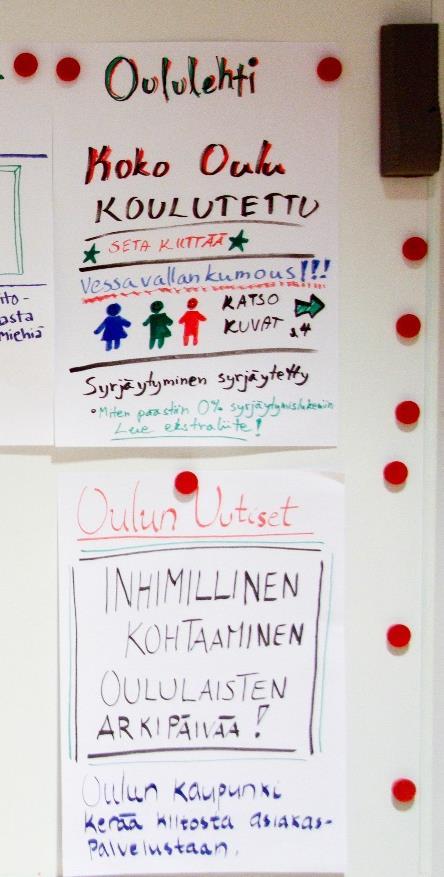 Oululehti
Koko Oulu
KOULUTETTU
SETA KIITTÄÄ
Vessavallankumous!!!
KATSO
KUVAT s.4
Syrjäytyminen syrjäytetty
• Miten päästiin 0% syrjäytymislukemiin
Lue ekstraliite!
miehiä
Oulun Uutiset
INHIMILLINEN
KOHTAAMINEN
OULULAISTEN
ARKIPÄIVÄÄ!
Oulun kaupunki
kerää kiitosta asiakas-
palvelustaan.